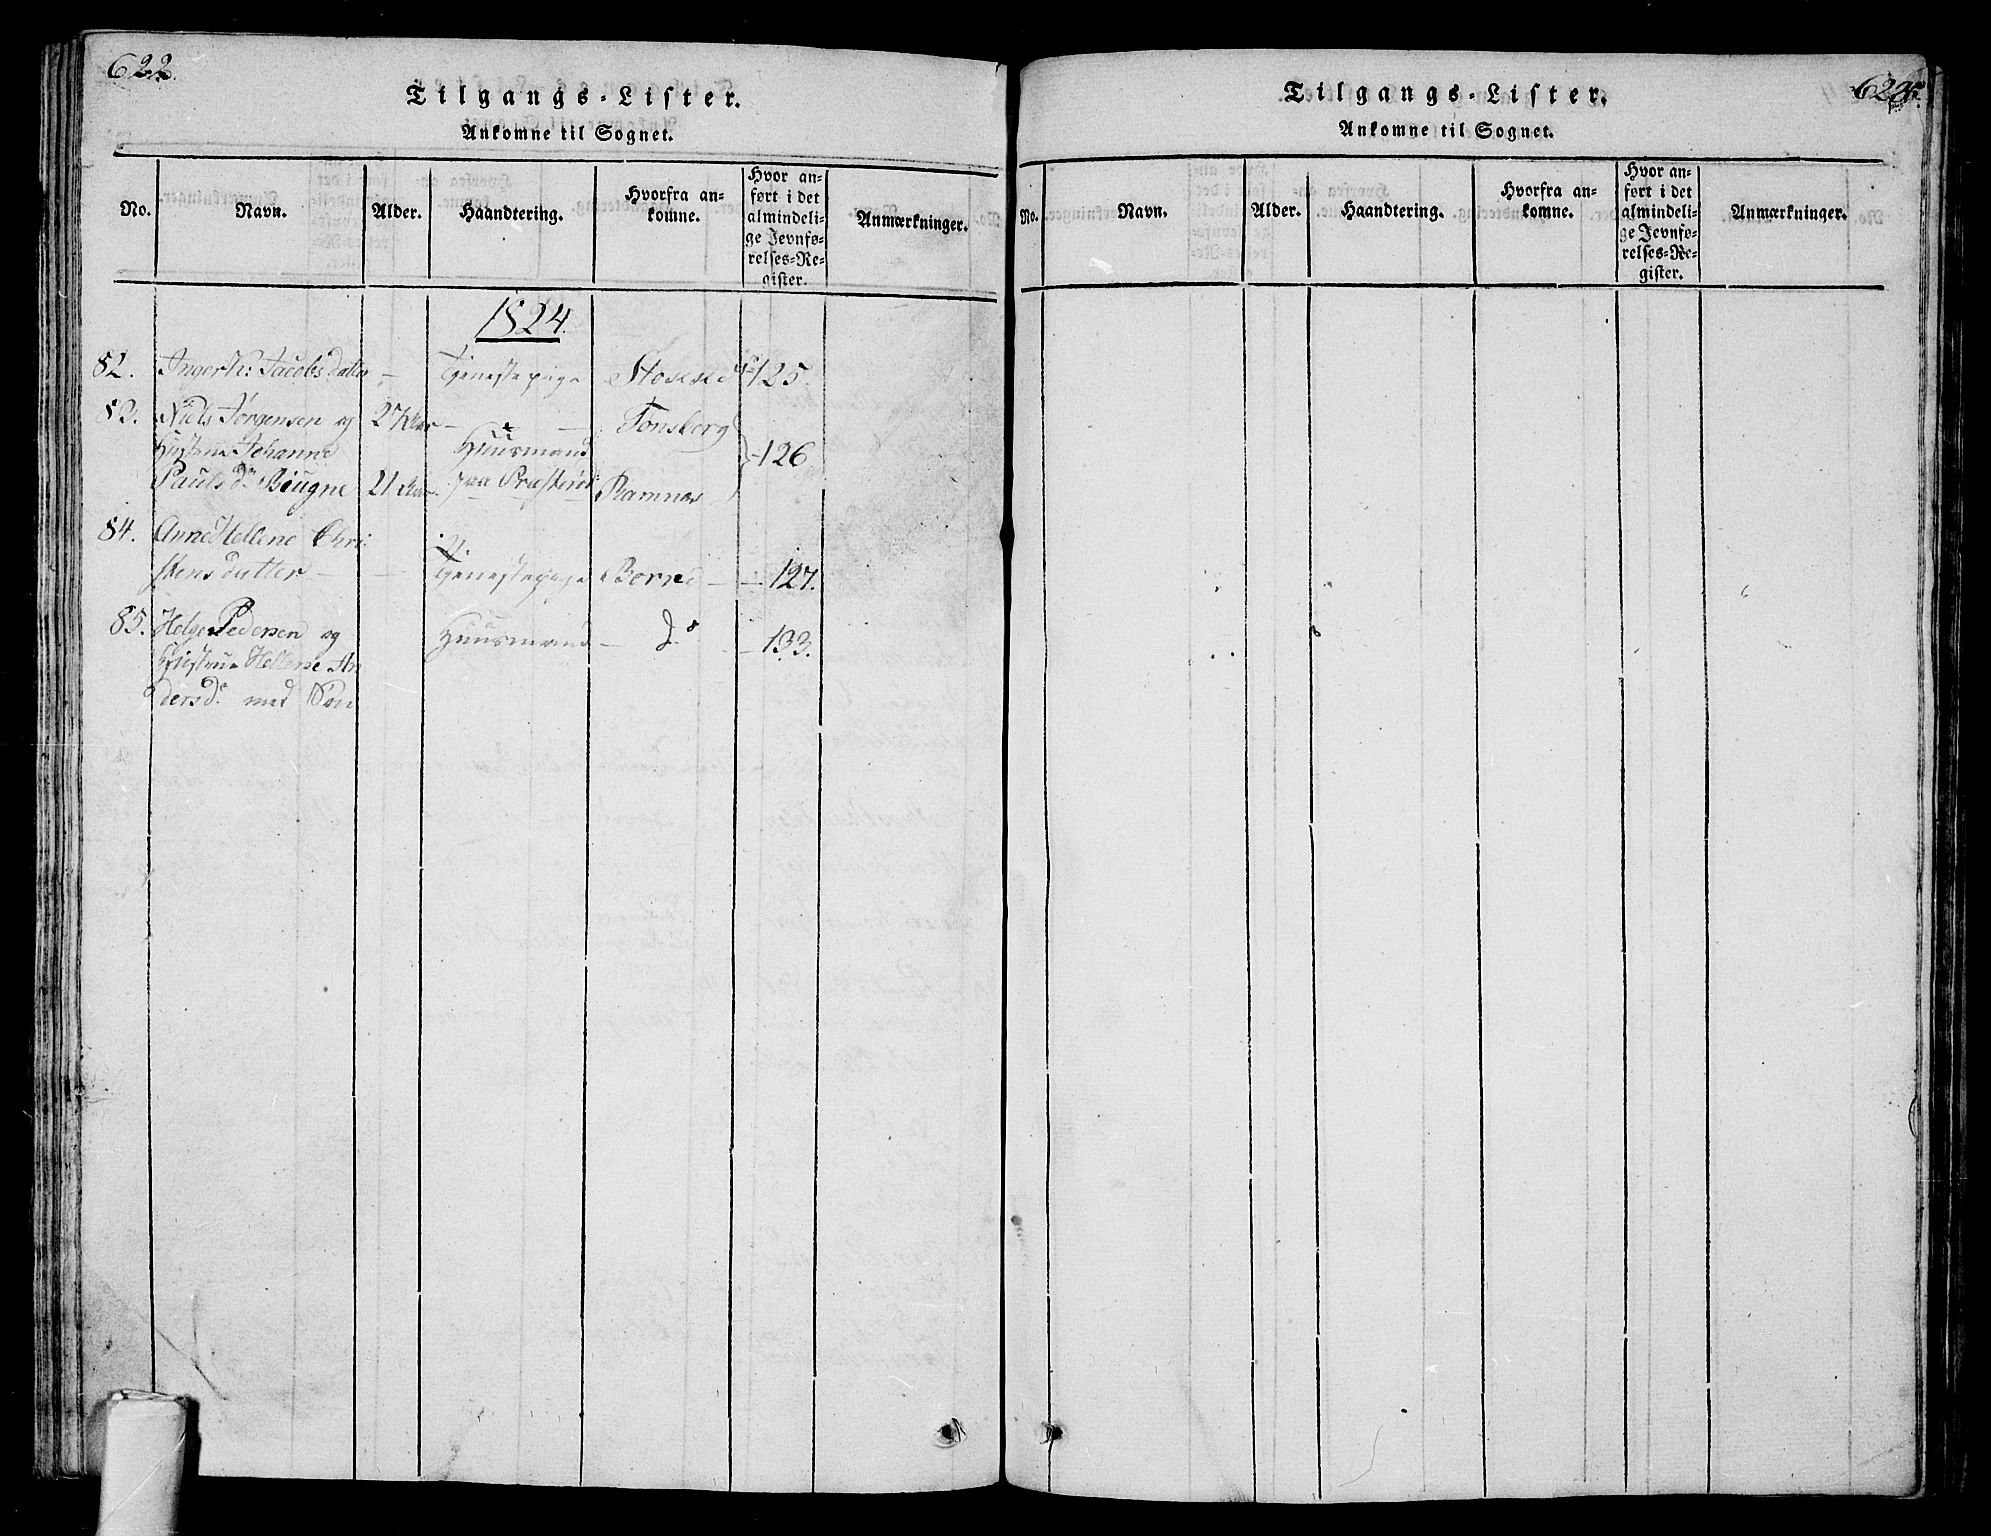 622.
Tilgangs-Lister.
Ankomne til Sognet.
No. Navn. Alder. Haandtering. Hvorfra an-
komne. Hvor an-
ført i det
almindeli-
ge Jevnfø-
relses-Re-
gister. Anmærkninger.
1824.
82. Ingerth: Jacobsdatter — Tjenestepige Stokke 125.
83. Niels Jørgensen og 27 Aar — — Tønsberg
Hustrue Johanne Huusmand 126
Pauls dr Biugne 21 Aar. Ramnæs
84. Anne Hellene Chri-
stensdatter — — Tjenestepige Borre — — 127.
85. Helge Pedersen og Huusmand — do — 133.
Hustrue Hellene An-
dersdr. med Søn
Tilgangs-Lister.
Ankomne til Sognet.
No. Navn. Alder. Haandtering. Hvorfra an-
komne. Hvor an-
ført i det
almindeli-
ge Jevnfø-
relses-Re-
gister. Anmærkninger.